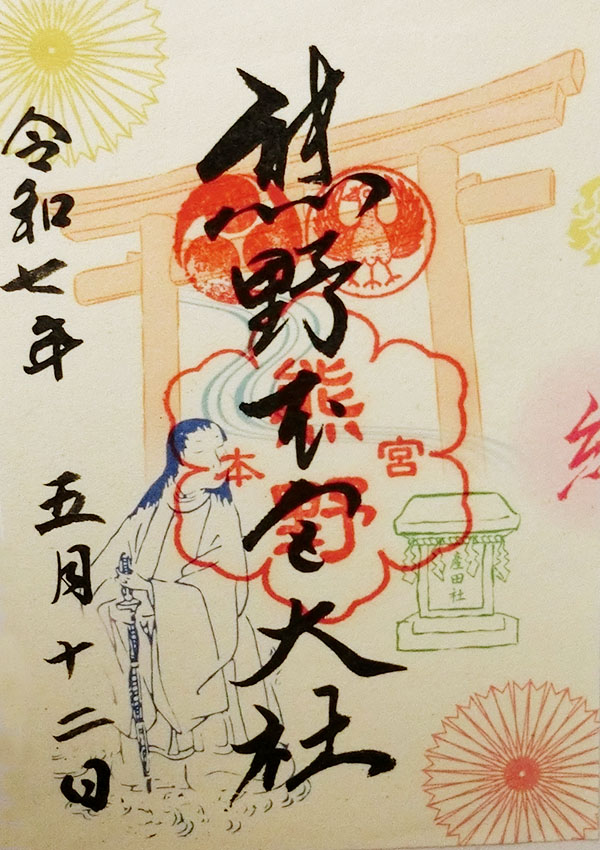 熊野本宮大社
熊野
本宮
産田社
令和七年 五月十二日